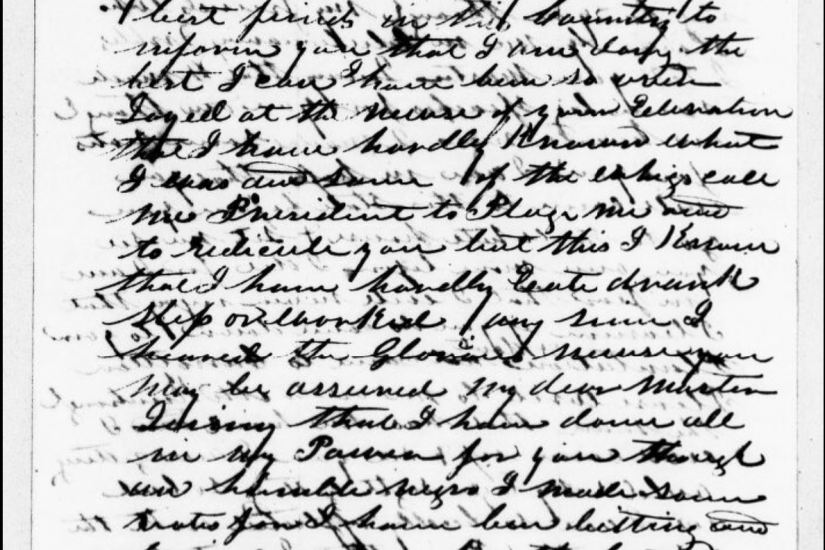 best friends in this Country to
inform you that I am doing the
best I can I have been so over
Joyed at the newse of your Ecleration
that I have hardly Known what
I was and some of the whigs call
me President to Plage me and
to redicule you but this I Know
that I have hardly Eate drank
Slep or workked any since I
heared the Glorious newse you
may be assured my dear Master
Jimmy that I have done all
in my Power for you though
an humble negro I made some
votes for I have ben betting and